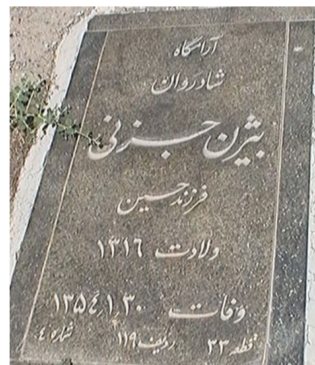 آرامگاه
شادروان
بیژن جزنی
فرزند حسین
ولادت ۱۳۱۶
وفات ۱۳۵۴٫۱٫۳۰
قطعه ۳۳ ردیف ۱۱۹ شماره ۴